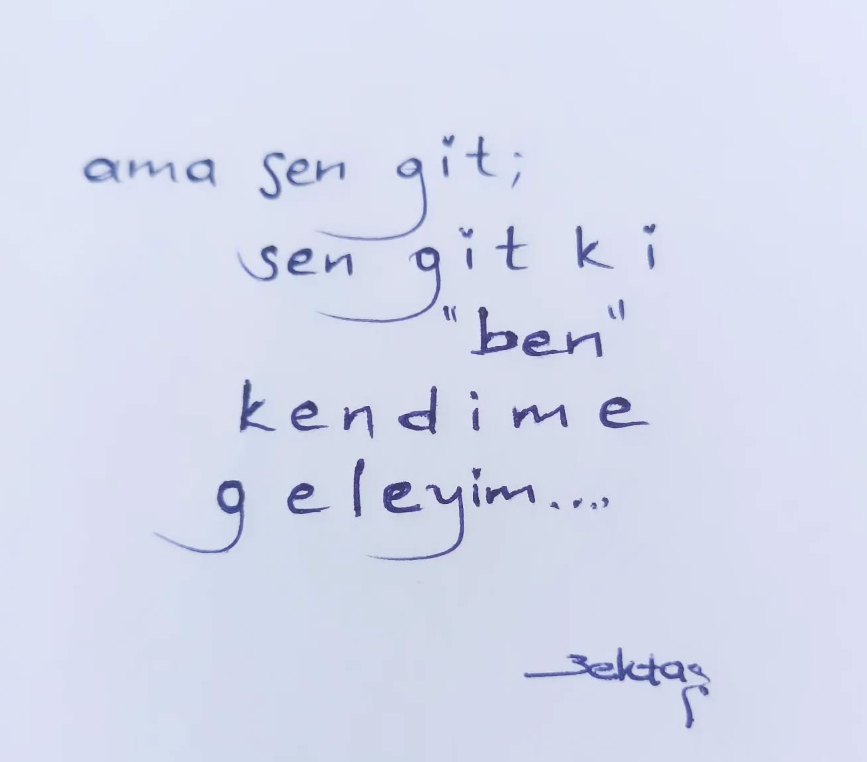 ama sen git;
sen git ki
"ben"
kendime
geleyim....
Bektaş